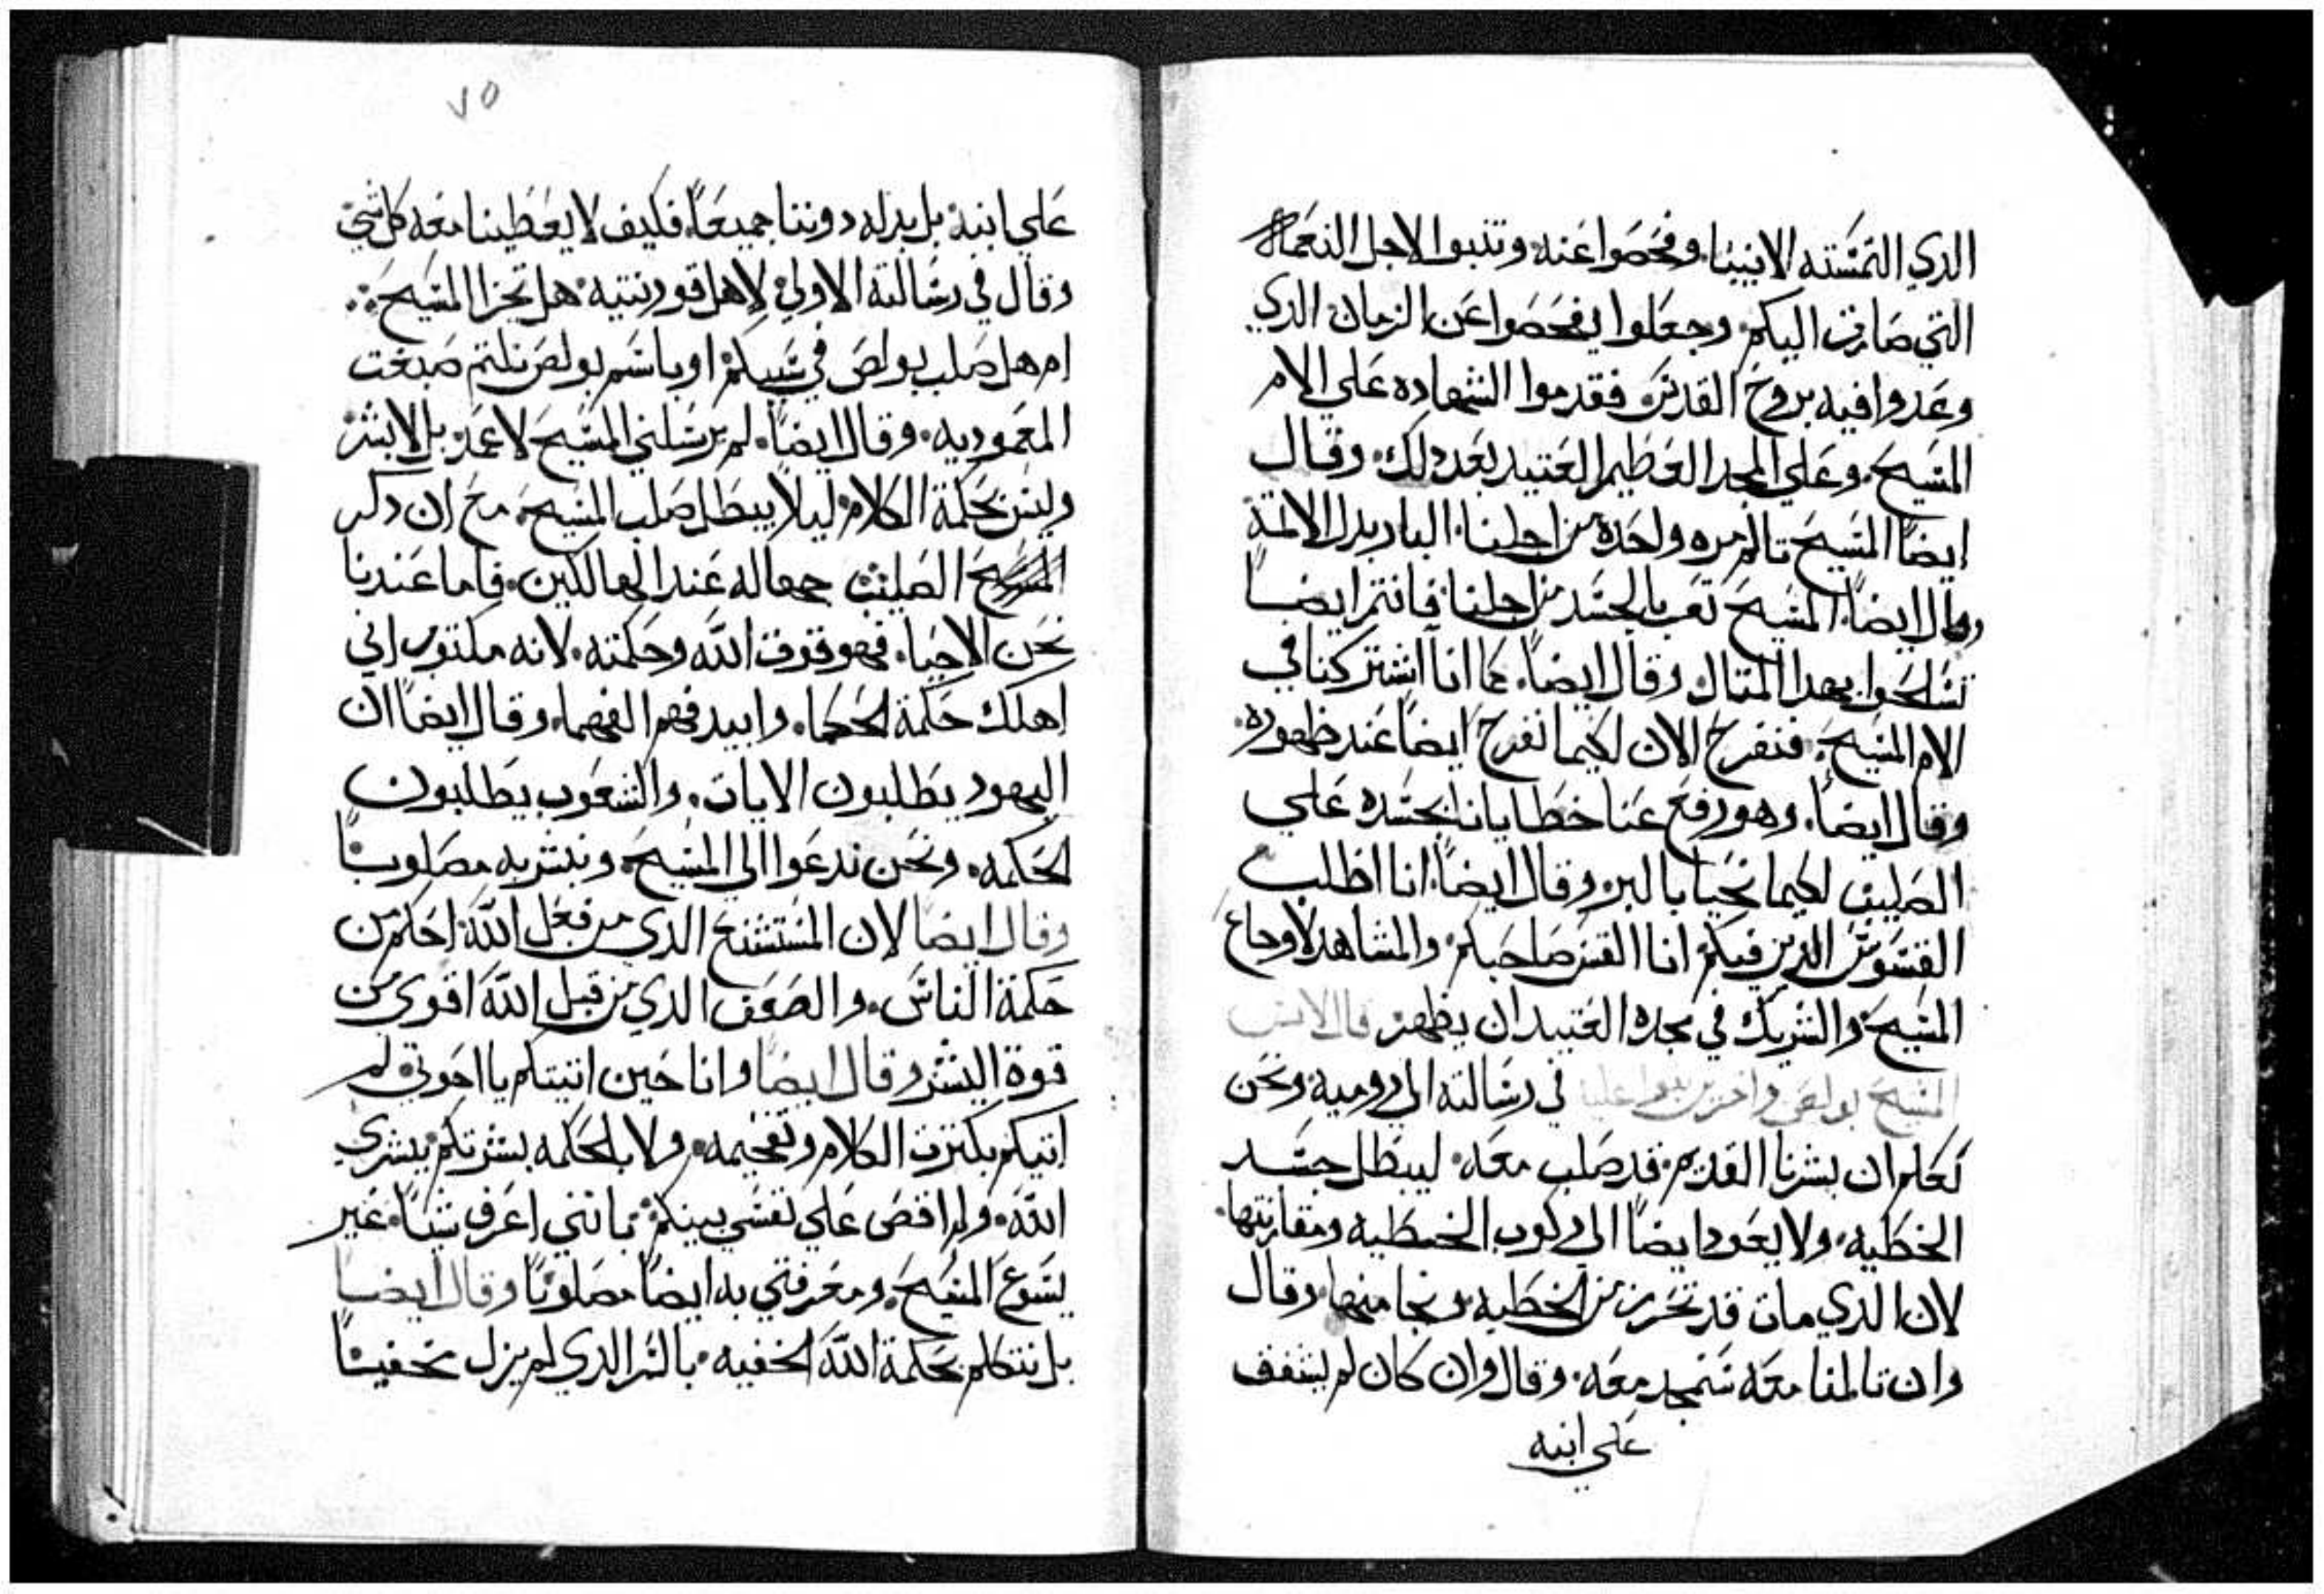 الدي التمسته الانبيا. وفحصوا عنه. وتنبوا لاجل النعمه
التي صارت اليكم. وجعلوا يفحصوا عن الزمان الدي
وعدوا فيه بروح القدس. فقدموا الشهاده علي الام
المسيح. وعلي المجد العظيم العتيد بعد دلك. وقال
ايضاً المسيح تالم مره واحده من اجلنا. البار بدل الاتمة
وقال ايضاً. المسيح تعب بالجسد من اجلنا. فانتم ايضاً
تسلحوا بهدا المتال. وقال ايضاً. كما انا اشتركنا في
الام المسيح. فنفرح الان لكيما نفرح ايضاً عند ظهوره.
وقال ايضاً. وهو رفع عنا خطايانا بجسده علي
الصليب لكيما نحيا بالبر. وقال ايضاً. انا اطلب
القسوس الدين فيكم. انا القس صاحبكم. والمشاهد لاوجاع
المسيح. والشريك في مجده العتيد ان يظهر.
المسيح بولص في رسالته الي رومية. ونحن
نعلم ان بشرنا القديم. قد صلب معه. ليبطل جسد
الخطيه. ولا يعود ايضاً الي ركوب الخطيه ومقارنتها.
لان الدي مات قد تحرر من الخطيه ونجا منها. وقال
وان تالمنا معه سنمجد معه. وقال وان كان لم يشفق
علي ابنه
٧٥
علي ابنه. بل بدله دوننا جميعاً. فكيف لا يعطينا معه كل شي
وقال في رسالته الاولي لاهل قورنتيه. هل تجزا المسيح.
ام هل صلب بولص في سببكم. او باسم بولص نلتم صبغت
المعموديه. وقال ايضاً. لم يرسلني المسيح لاعمد. بل لابشر
وليس بحكمة الكلام. ليلا يبطل صلب المسيح. مع ان دكر
الصليب جهاله عند الهالكين. فاما عندنا
نحن الاحيا. فهو قوة الله وحكمته. لانه مكتوب اني
اهلك حكمة الحكما. وابيد فهم الفهما. وقال ايضاً ان
اليهود يطلبون الايات. والشعوب يطلبون
الحكمه. ونحن ندعوا الي المسيح. ونبشر به مصلوباً
وقال ايضاً لان المستشنع الدي من فعل الله. احكم من
حكمة الناس. والضعف الدي من قبل الله اقوي من
قوة البشر وقال ايضاً وانا حين اتيتكم يا اخوتي. لم
اتيكم بكترت الكلام وتفخيمه. ولا بالحكمه بشرتكم ببشري
الله. ولم اقض علي نفسي بينكم. بانني اعرف شياً. غير
يسوع المسيح. ومعرفتي به ايضاً مصلوباً وقال ايضاً
بل نتكلم بحكمة الله الخفيه. بالسر الدي لم يزل مخفياً